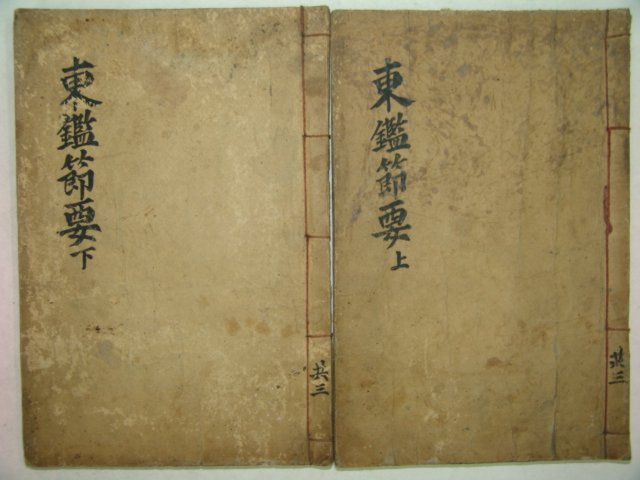 東鑑節要上
共三
東鑑節要下
共三